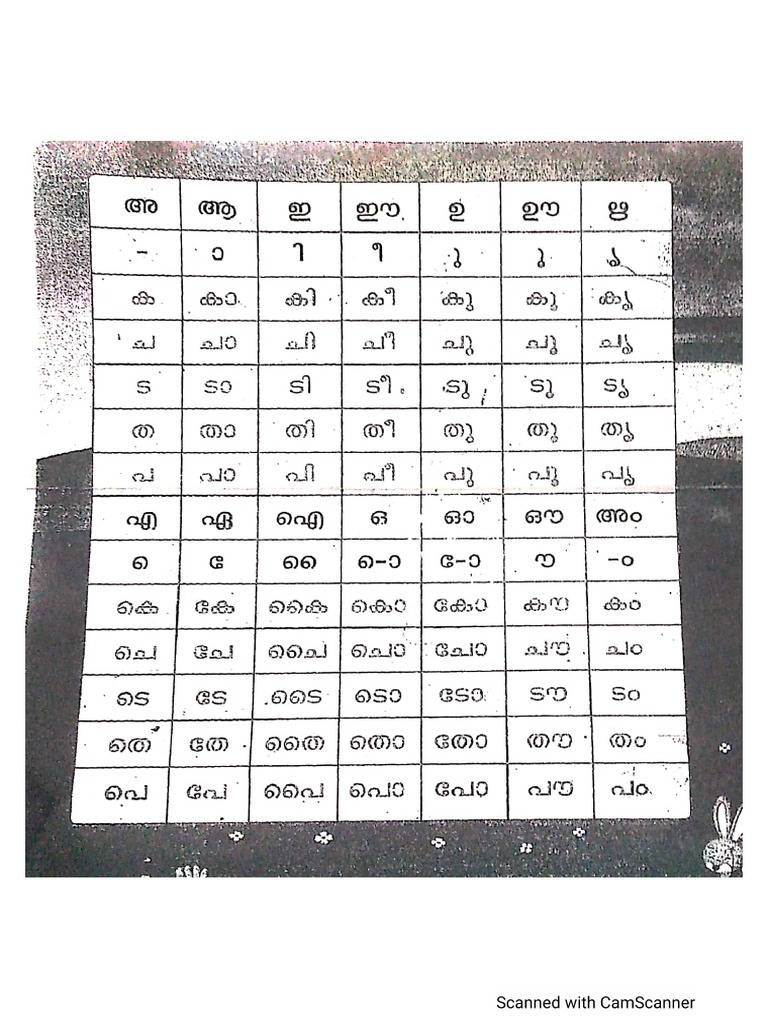 അ ആ ഇ ഈ ഉ ഊ ഋ
- ാ ി ീ ു ൂ ൃ
ക കാ കി കീ കു കൂ കൃ
ച ചാ ചി ചീ ചു ചൂ ചൃ
ട ടാ ടി ടീ ടു ടൂ ടൃ
ത താ തി തീ തു തൂ തൃ
പ പാ പി പീ പു പൂ പൃ
എ ഏ ഐ ഒ ഓ ഔ അം
െ േ ൈ െ-ാ േ-ാ ൗ -ം
കെ കേ കൈ കൊ കോ കൗ കം
ചെ ചേ ചൈ ചൊ ചോ ചൗ ചം
ടെ ടേ ടൈ ടൊ ടോ ടൗ ടം
തെ തേ തൈ തൊ തോ തൗ തം
പെ പേ പൈ പൊ പോ പൗ പം
Scanned with CamScanner